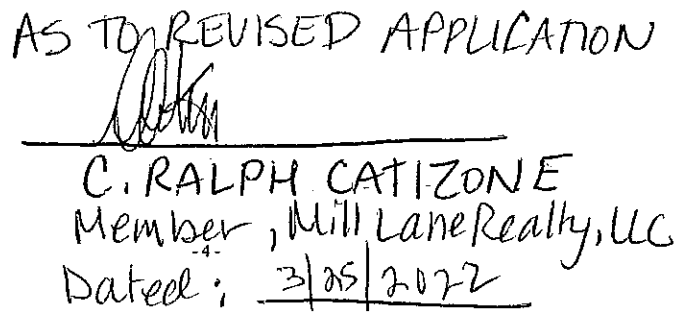 AS TO REVISED APPLICATION
C. RALPH CATIZONE
Member, Mill Lane Realty, LLC
-4-
Dated: 3/25/2022